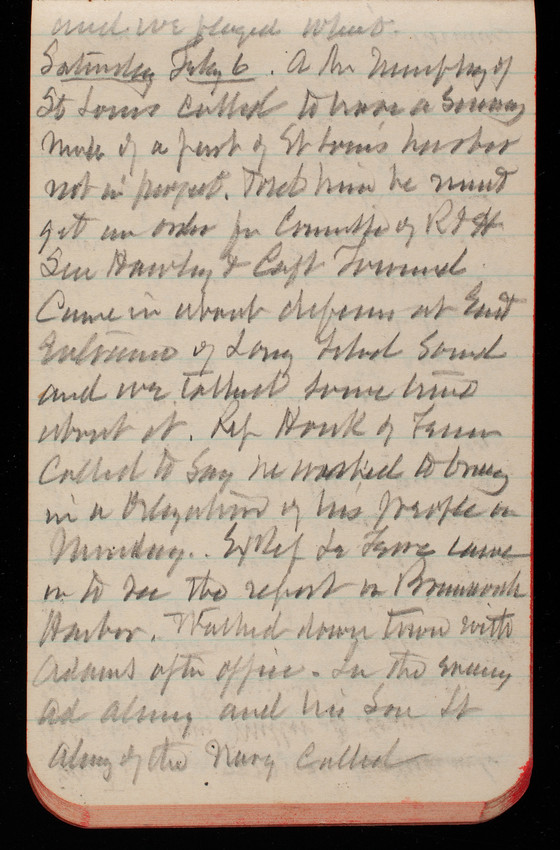 and we played whist.
Saturday Feby 6. A Mr Murphy of
St Louis called to have a survey
made of a part of St Louis harbor
not in project. Told him he must
get an order fr Committee of R & H
Sen Hawley & Capt
Came in about defenses at East
Entrance of Long Island Sound
and we talked some time
about it. Rep Houk of Tenn
Called to say he wanted to bring
in a delegation of his people on
Monday. Ex Rep Le Fevre came
in to see the report on Brunswick
Harbor. Walked down town with
Adams after office. In the evening
Ad Almy and his Son Lt
Almy of the Navy called